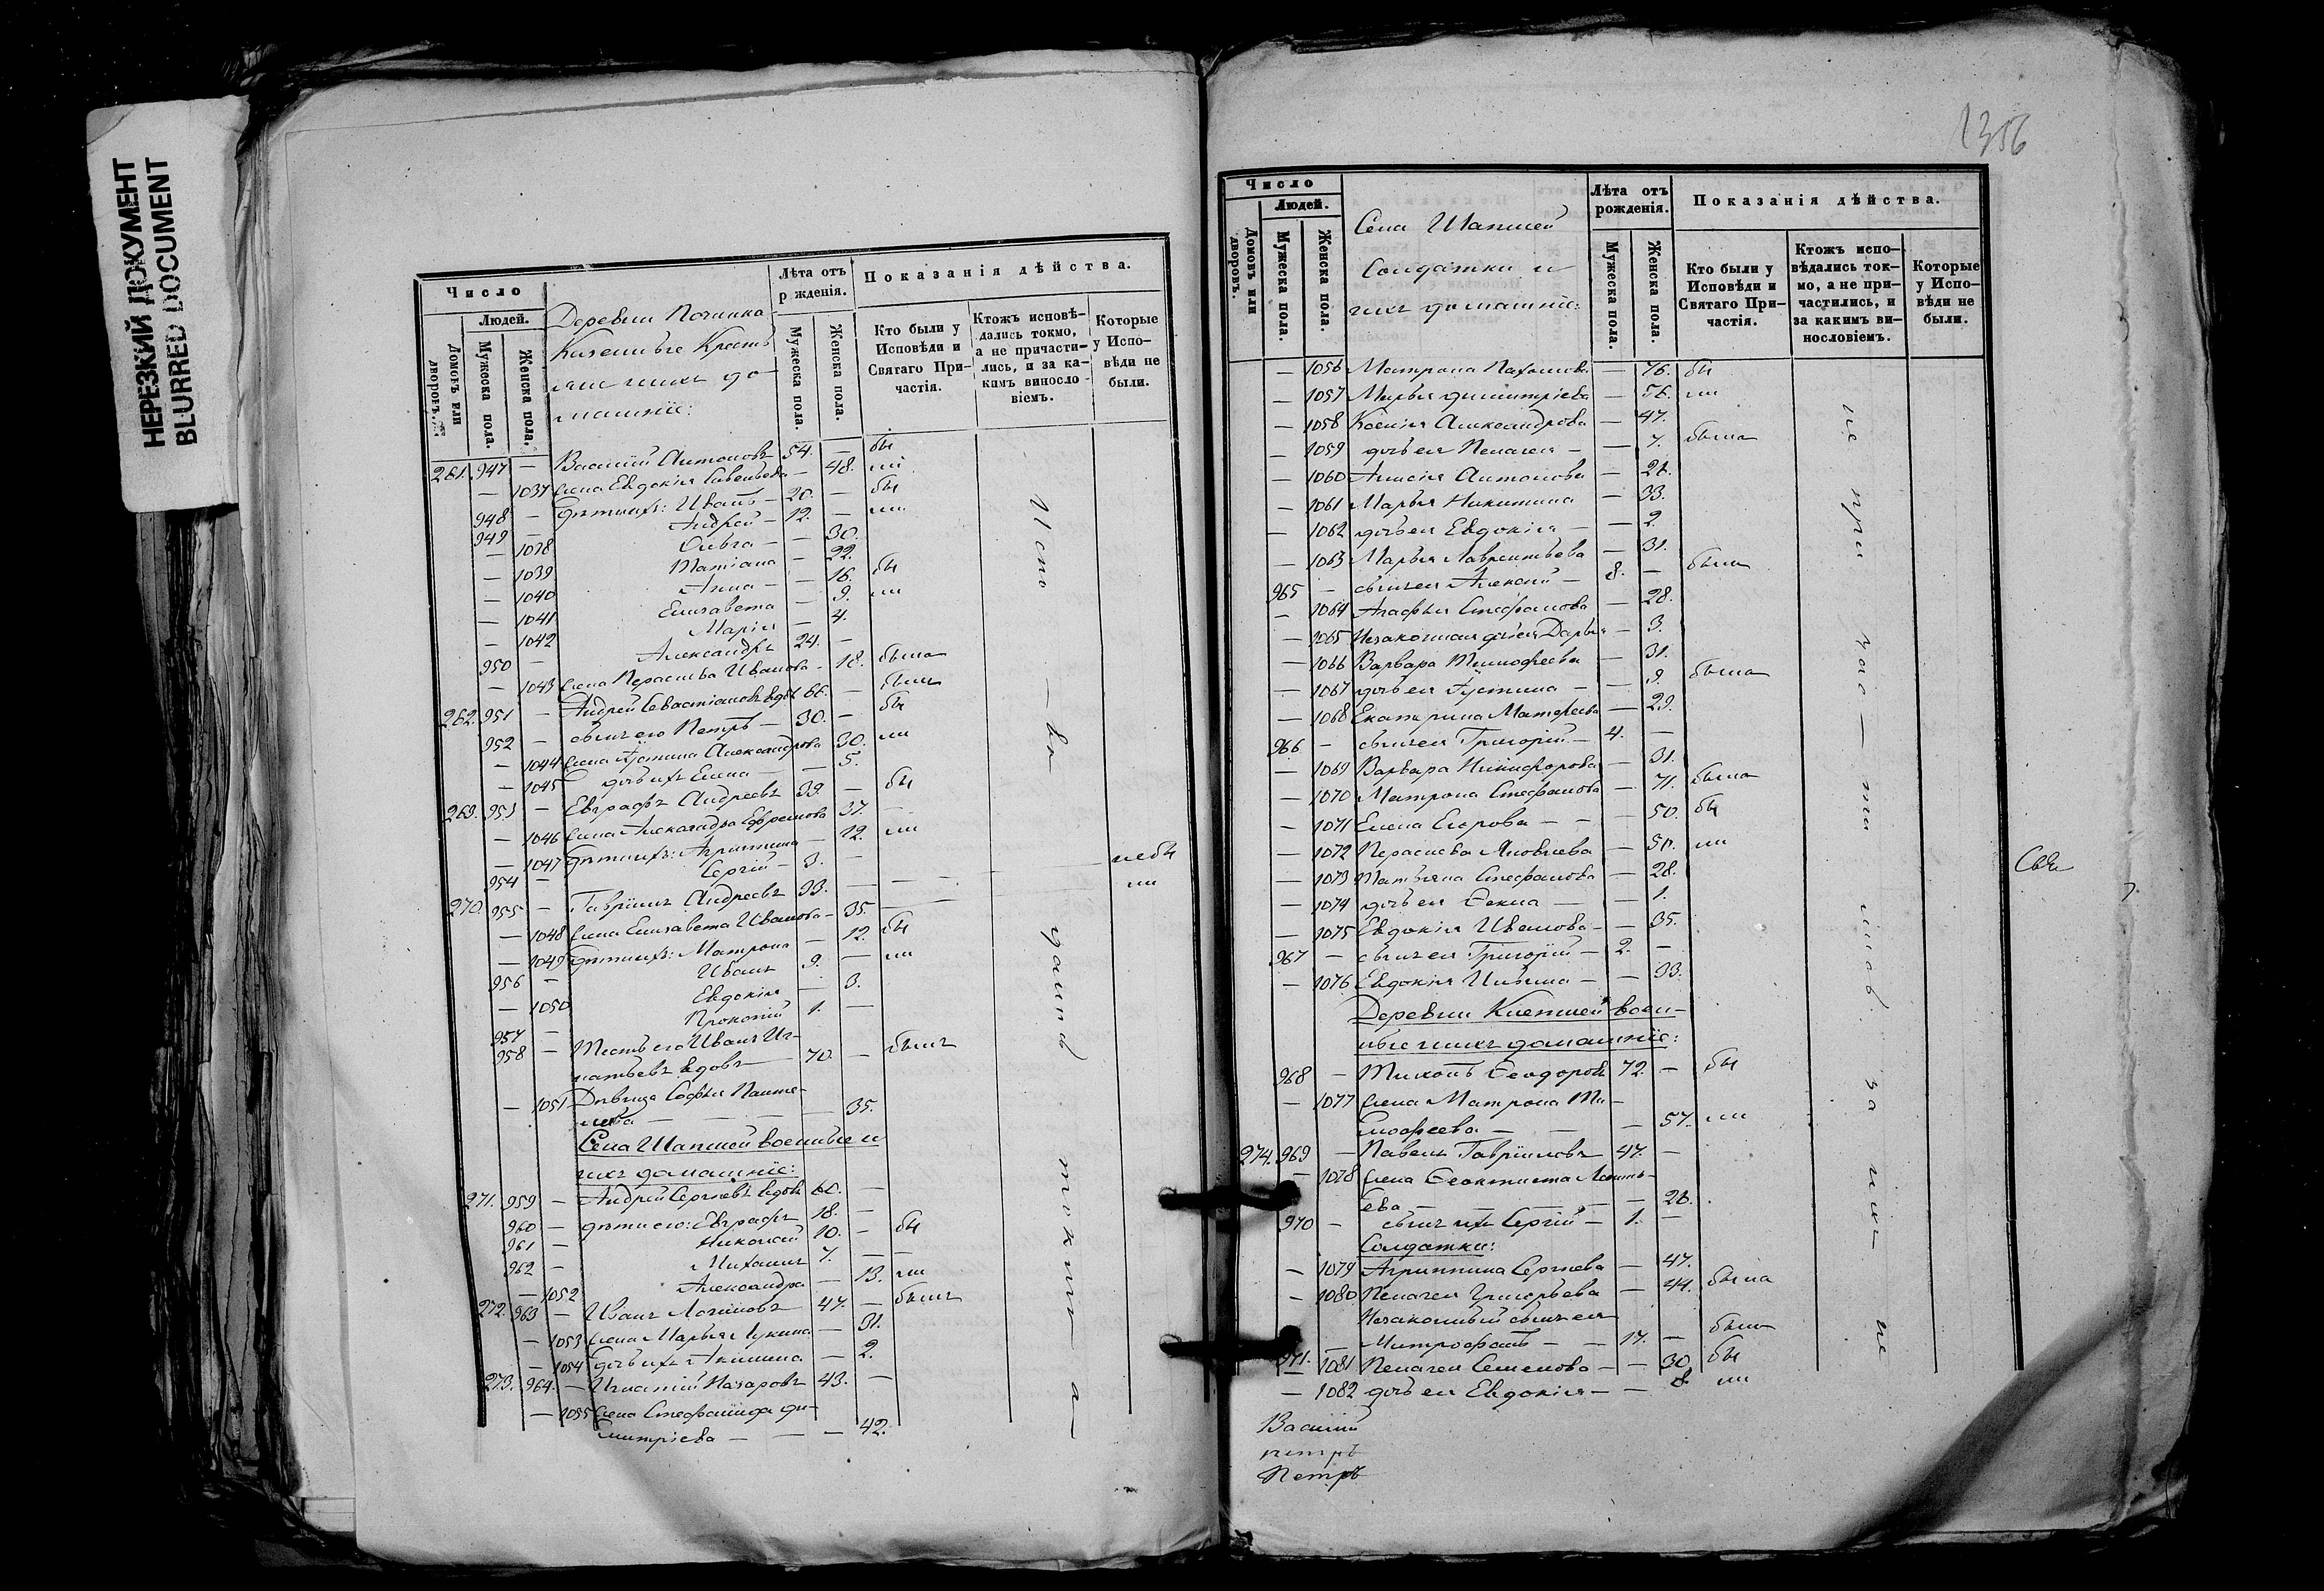 НЕРЕЗКИЙ ДОКУМЕНТ
BLURRED DOCUMENT
Число
Людей.
Домовъ или дворовъ.
Мужеска пола.
Женска пола.
Деревни Починка
Казенные Кресть
яне и ихъ до-
машніе:
Лѣта отъ
р жденія.
Мужеска пола.
Женска пола.
Показанія дѣйства.
Кто были у
Исповѣди и
Святаго При-
частія.
Ктожъ исповѣ-
дались токмо,
а не причасти-
лись, и за ка-
кимъ винословіемъ.
Которые
у Испо-
вѣди не
были.
261. 947 — Василій Антоновъ 54. — бы
— 1037 жена Евдокія Савельева — 48. ли
948 — дѣти ихъ: Иванъ — 20. — бы
949 — Андрей — 12. — ли
— 1038 Ольга — — 30.
— 1039 Татіана — 22.
— 1040 Анна — — 16. бы
— 1041 Елизавета — 9. ли
— 1042 Марія — 4.
950 — Александръ 24. —
— 1043 жена Параскева Иванова — 18. была
262. 951 — Андрей Севастіановъ вдов 66. — былъ
952 — сынъ его Петръ — 30. — бы
— 1044 жена Іустина Александрова 30. ли
— 1045 дочь ихъ Елена — — 5.
269. 953 — Евграфъ Андреевъ 39. — бы
— 1046 жена Александра Ефремова 37. —
— 1047 дѣти ихъ: Агриппина — 12. ли
954 — Сергій — 3. —
270. 955 — Гавріилъ Андреевъ 33. — — небы
— 1048 жена Елизавета Иванова — 35. — ли
— 1049 дѣти ихъ: Матрона — 12. бы
956 — Иванъ 9. — ли
— 1050 Евдокія — 3.
957 — Прокопій 1. —
958 — Тесть его Иванъ Иг-
натьевъ вдовъ — 70. — былъ
— 1051 Дѣвица Софья Панте-
леева — — — — 35.
Села Шапшей военные и
ихъ домашніе:
271. 959 — Андрей Сергѣевъ вдов 60. —
960 — дѣти его: Евграфъ 18. —
961 — Николай 10. — бы
962 — Михаилъ 7. — —
— 1052 Александра — 13. ли
272. 963 — Иванъ Логиновъ 47. — былъ
— 1053 жена Марья Лукина — 31.
— 1054 дочь ихъ Акилина — 2.
273. 964. — Игнатій Назаровъ 43. —
— 1055 жена Стефанида Ди-
митріева — — — 42.
Испо — вѣ
дались
токмо — а —
1356
Число
Людей.
Домовъ или дворовъ.
Мужеска пола.
Женска пола.
Села Шапшей
Солдатки и
ихъ домашніе:
Лѣта отъ
рожденія.
Мужеска пола.
Женска пола.
Показанія дѣйства.
Кто были у
Исповѣди и
Святаго При-
частія.
Ктожъ испо-
вѣдались ток-
мо, а не при-
частились, и
за какимъ ви-
нословіемъ.
Которые
у Испо-
вѣди не
были.
— 1056 Матрона Пахомова — 76. бы
— 1057 Марья Димитріева — 56. ли
— 1058 Ксенія Александрова — 47.
— 1059 дочь ея Пелагея — — 7. была
— 1060 Анисія Антонова — 26.
— 1061 Марья Никитина — 33.
— 1062 дочь ея Евдокія — — 2
— 1063 Марья Лаврентьева — 31.
965 — сынъ ея Алексій — 8. — былъ
— 1064 Агафья Стефанова — 28.
— 1065 Незаконная дочь ея Дарья — 3.
— 1066 Варвара Тимофеева — 31.
— 1067 дочь ея Іустина — — 9. была
— 1068 Екатерина Матфеева — 29.
966 — сынъ ея Григорій — 4. —
— 1069 Варвара Никифорова — 31.
— 1070 Матрона Стефанова — 71. была
— 1071 Елена Егорова — — — 50. бы
— 1072 Параскева Яковлева — 50. ли
— 1073 Татьяна Стефанова — 28.
— 1074 дочь ея Ѳекла — — 1.
— 1075 Евдокія Иванова — — 35.
967 — сынъ ея Григорій — 2. —
— 1076 Евдокія Ильина — — 33.
Деревни Клетней воен-
ные и ихъ домашніе:
968 — Тихонъ Ѳеодоровъ 72. — бы
— 1077 жена Матрона Ти-
моѳеева — — — 57. ли
274. 969 — Павелъ Гавриловъ 47. —
— 1078 жена Ѳеоктиста Леонть-
ева — — — 26.
970 — сынъ ихъ Сергій — 1. —
Солдатки:
— 1079 Агриппина Сергѣева — 47.
— 1080 Пелагея Григорьева — 44. была
Незаконный сынъ ея
971. — Митрофанъ — — 17. — былъ
— 1081 Пелагея Семенова — — 30. бы
— 1082 дочь ея Евдокія — — 8. ли
не при час — ти лись за ним не
Свя
Василій
петръ
Петръ